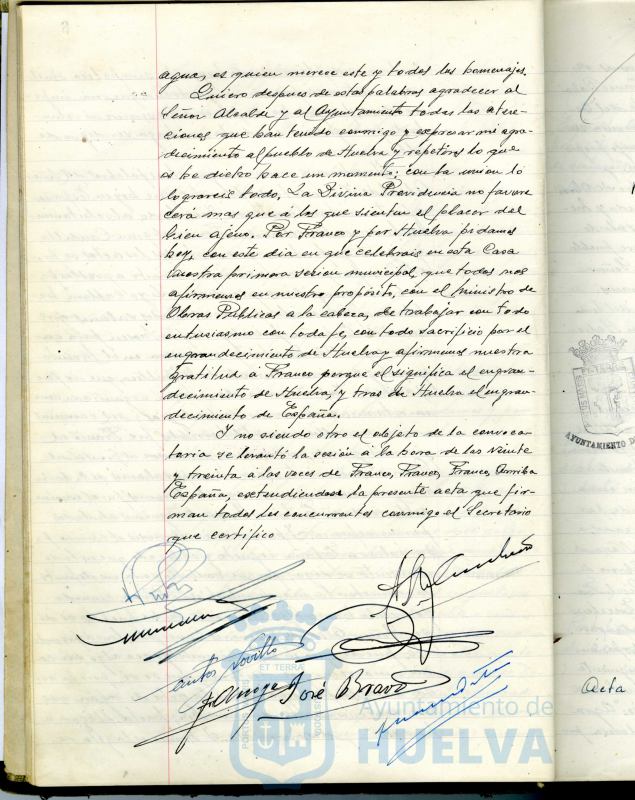 agua, es quien merece este y todos los homenajes.
Quiero despues de estas palabras agradecer al
Señor Alcalde y al Ayuntamiento todas las aten-
ciones que han tenido conmigo y expresar mi agra-
decimiento al pueblo de Huelva y repetiros lo que
os he dicho hace un momento; con la union lo
lograreis todo. La Divina Providencia no favore
cerá mas que á los que sienten el placer del
bien ajeno. Por Franco y por Huelva pidamos
hoy, con este dia en que celebrais en esta Casa
vuestra primera sesion municipal, que todos nos
afirmemos en nuestro propósito, con el ministro de
Obras Publicas a la cabeza, de trabajar con todo
entusiasmo con toda fe, con todo sacrificio por el
engrandecimiento de Huelva y afirmemos nuestra
gratitud á Franco porque el significa el engran-
decimiento de Huelva, y tras de Huelva el engran-
decimiento de España.
Y no siendo otro el objeto de la convoca-
toria se levantó la sesión á la hora de las veinte
y treinta á las voces de Franco, Franco, Franco, Arriba
España, extendiendose la presente acta que fir-
man todos los concurrentes conmigo el Secretario
que certifico
José Bravo
Novillo
PORTUS
ET TERRAE
CUSTODIA
Ayuntamiento de
HUELVA
AYUNTAMIENTO D
Acta